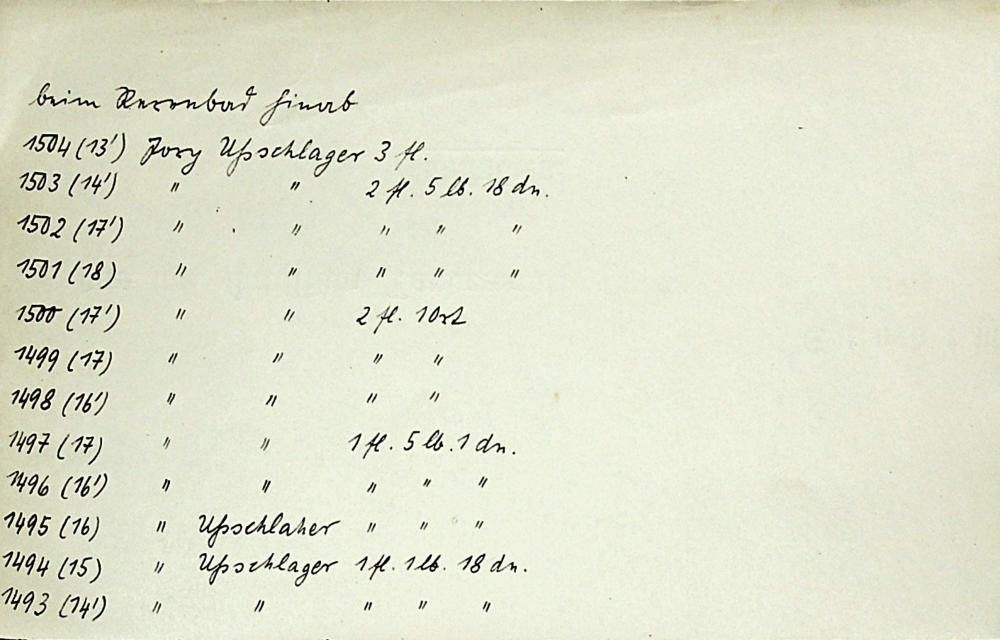 beim Rerrnbad hinab
1504 (13') Jorg Upschlager 3 fl.
1503 (14') " " 2 fl. 5 lb. 18 dn.
1502 (17') " " " " "
1501 (18) " " " " "
1500 (17') " " 2 fl. 1 Ort
1499 (17) " " " "
1498 (16') " " " "
1497 (17) " " 1 fl. 5 lb. 1 dn.
1496 (16') " " " " "
1495 (16) " Upschlaher " " "
1494 (15) " Upschlager 1 fl. 1 lb. 18 dn.
1493 (14') " " " " "